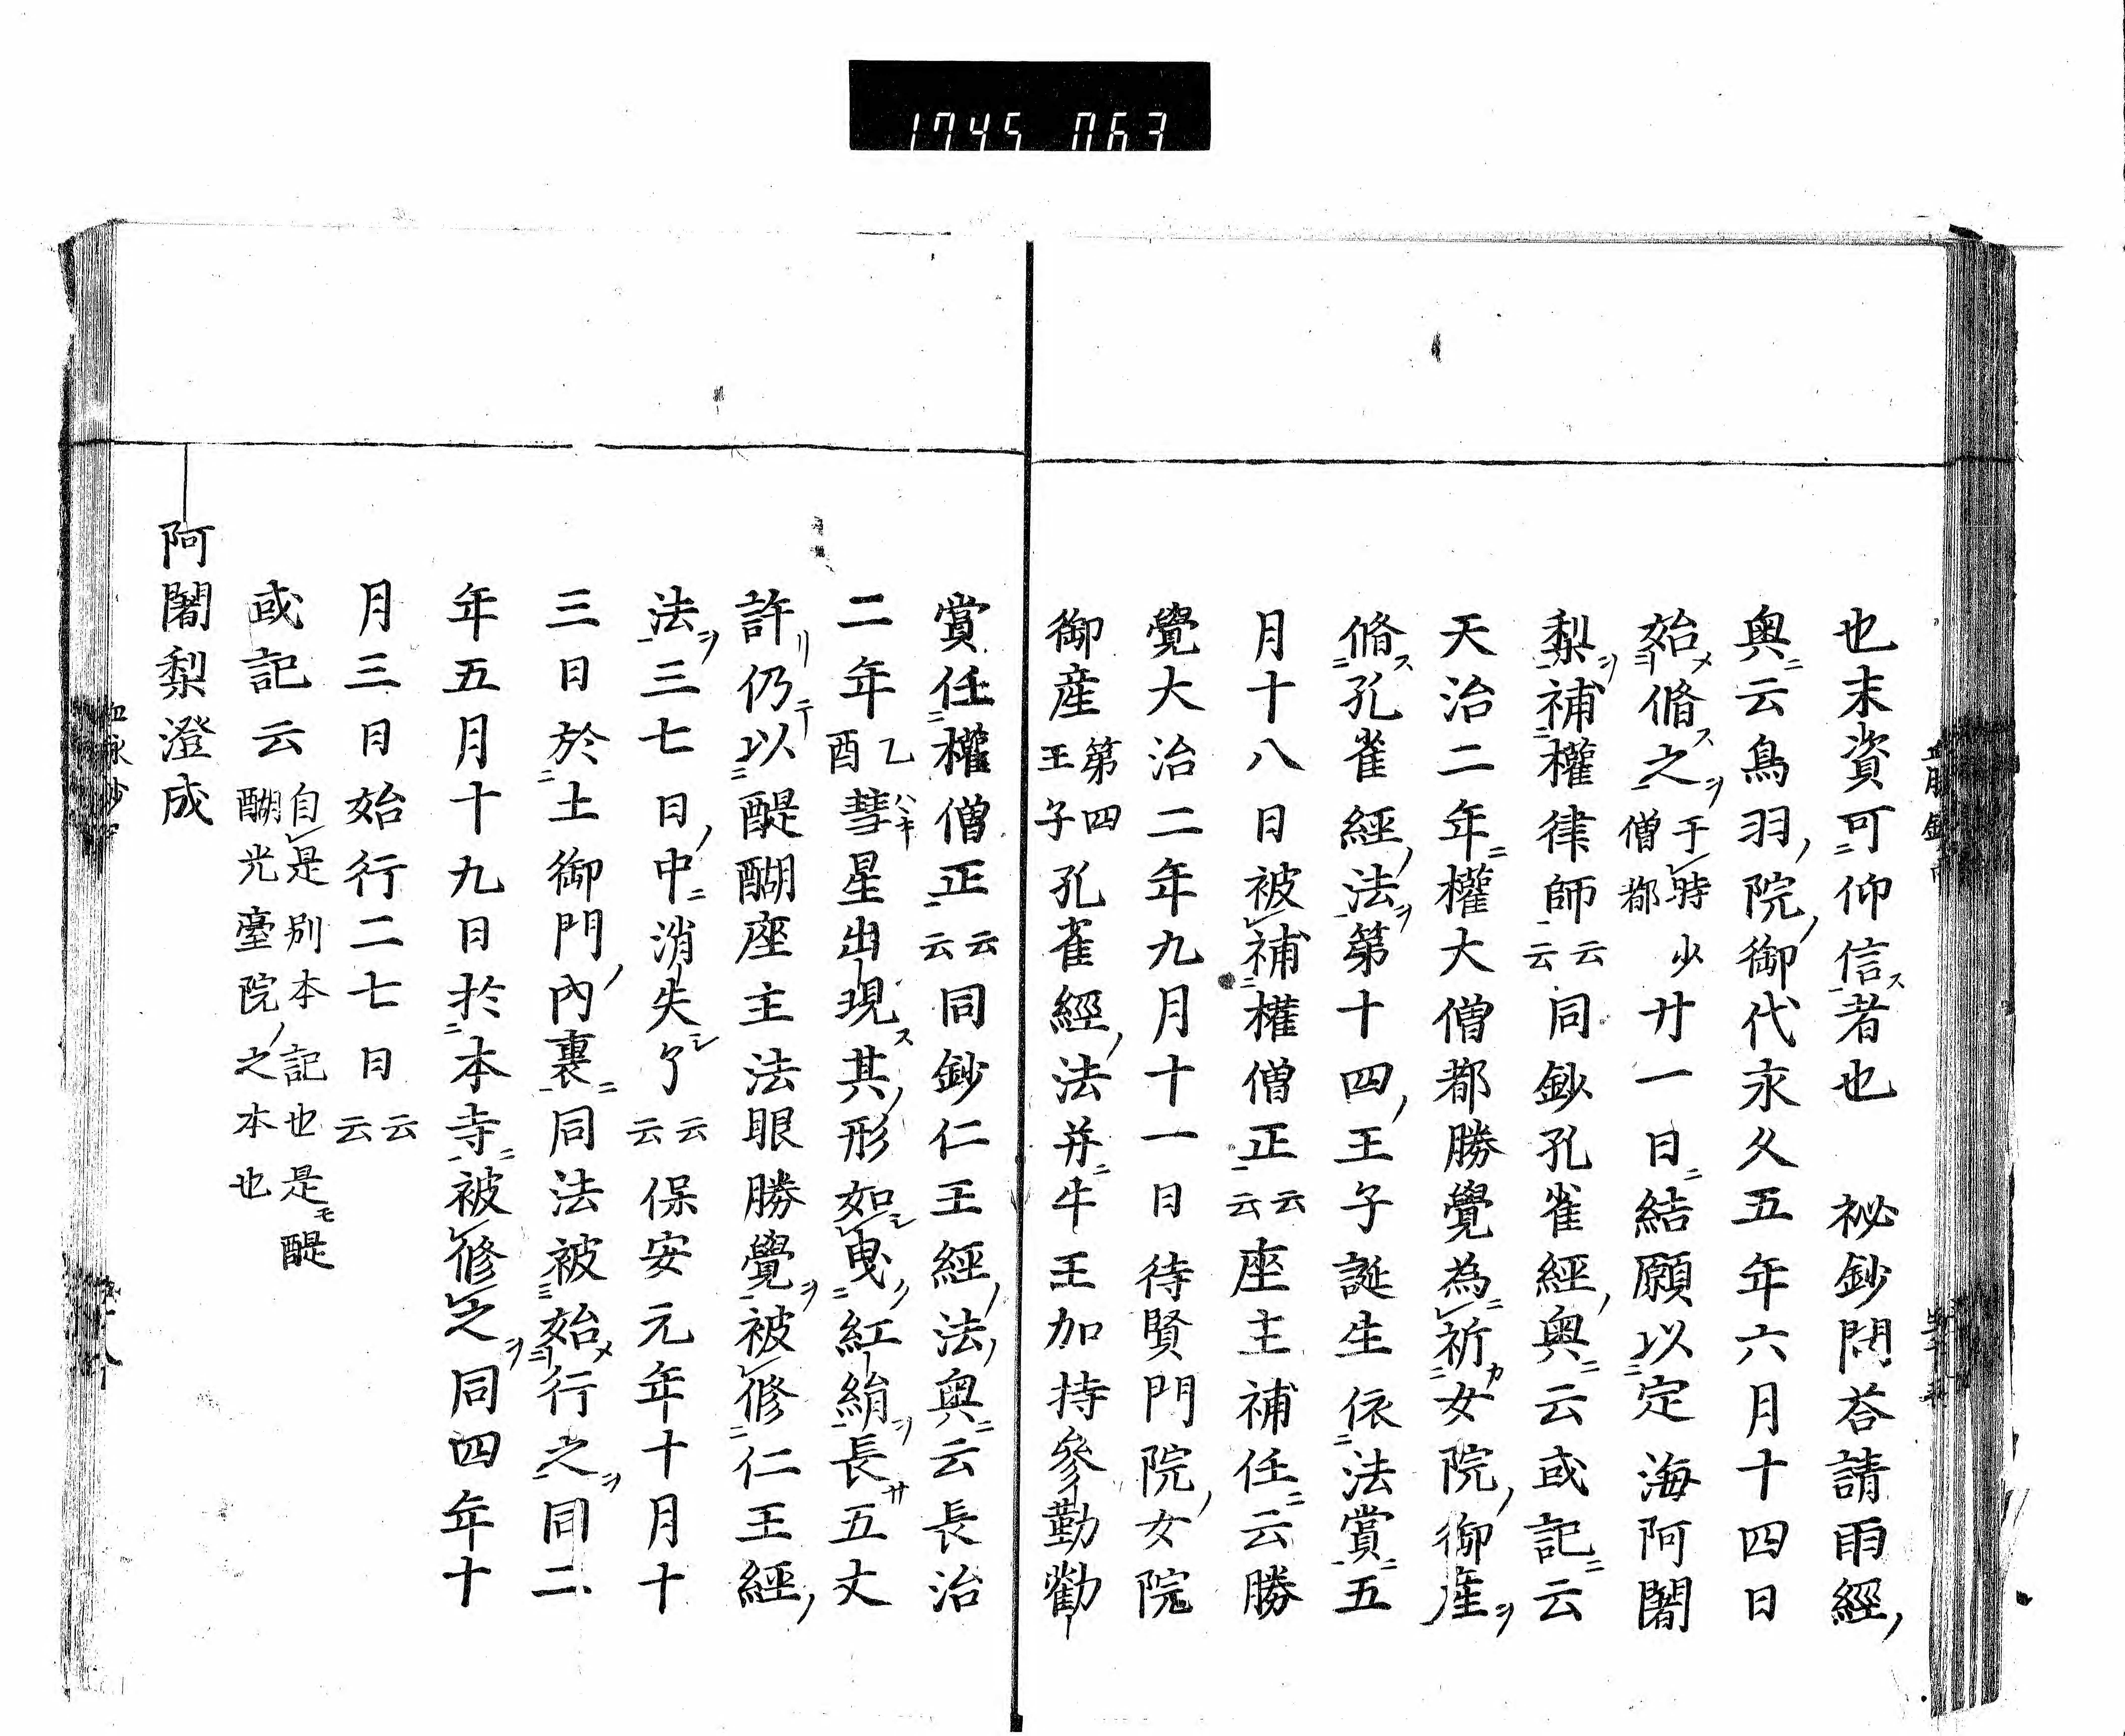 1745 063
也末資可仰信者也　祕鈔問荅請雨經ノ
奥ニ云鳥羽ノ院ノ御代永久五年六月十四日
始メ脩ス之ヲ于時少僧都廿一日ニ結願以定海阿闍
梨ヲ補權律師云云同鈔孔雀經ノ奥ニ云或記ニ云
天治二年ニ權大僧都勝覺為ニ祈カ女院ノ御産ヲ
脩ス孔雀經ノ法ヲ第十四ノ王子誕生依法賞ニ五
月十八日被補權僧正云云座主補任ニ云勝
覺大治二年九月十一日待賢門院ノ女院
御産第四王子孔雀經ノ法并ニ牛王加持參勤勸
賞任權僧正云云同鈔仁王經ノ法ノ奥ニ云長治
二年乙酉彗ハヽキ星出現ス其ノ形如シ曳リ紅絹ヲ長サ五丈
許リ仍テ以醍醐座主法眼勝覺ヲ被修仁王經ノ
法ヲ三七日ノ中ニ消失シ了云云保安元年十月十
三日於土御門ノ內裏ニ同法被始メ行之ヲ同二
年五月十九日於本寺ニ被修之ヲ同四年十
月三日始行二七日云云
或記云自是別本記也是モ醍醐光臺院ノ之本也
阿闍梨澄成